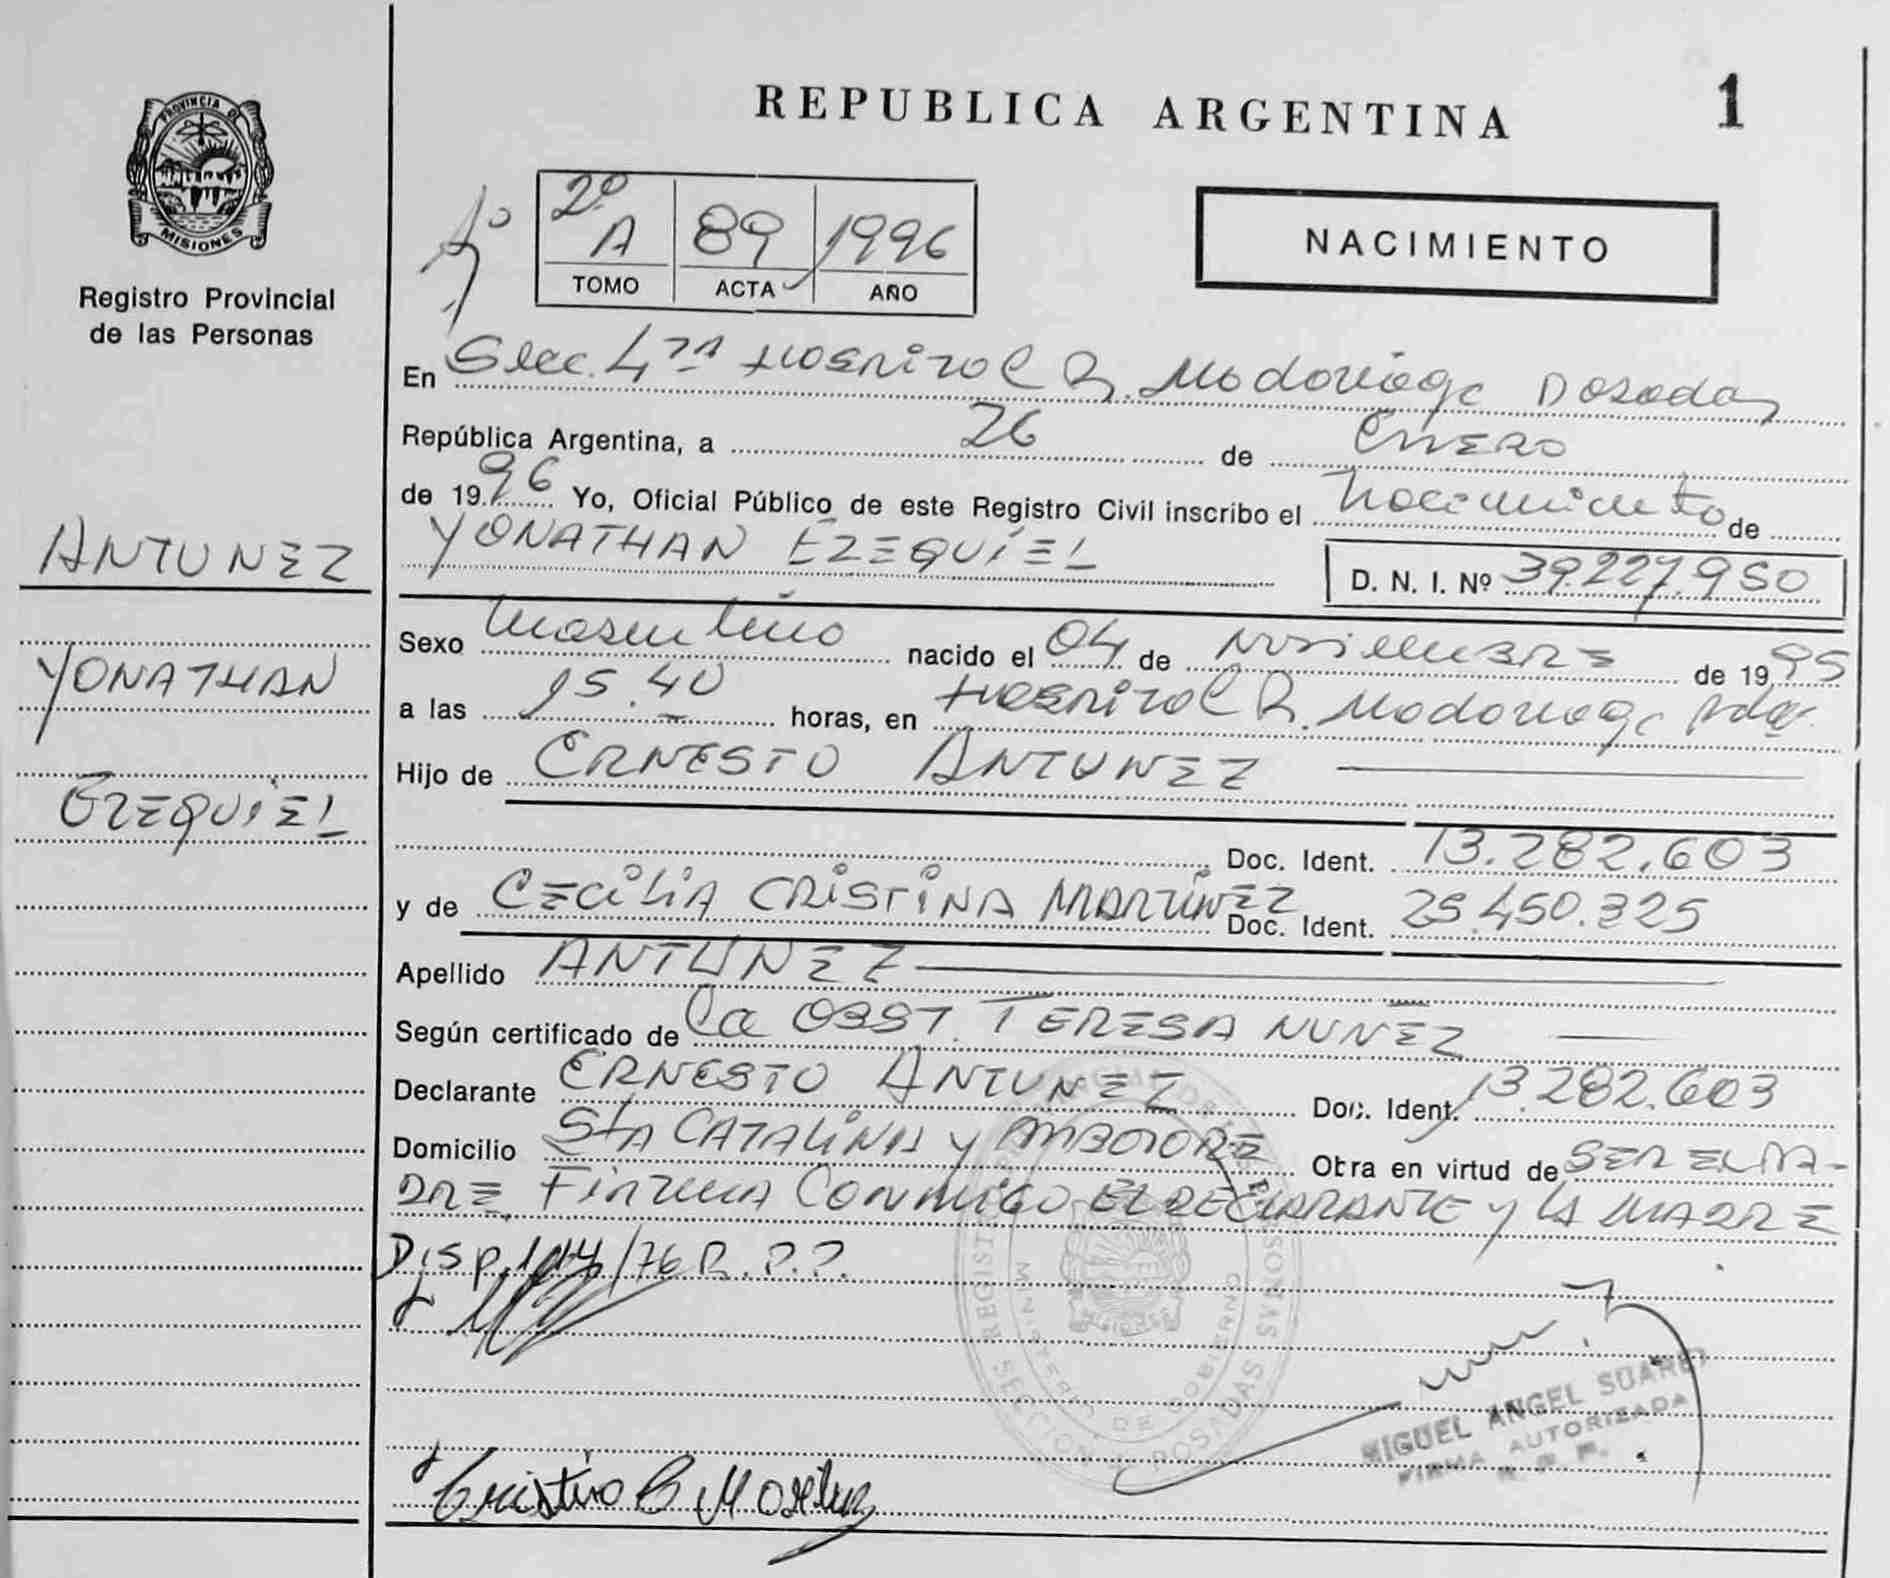 PROVINCIA DE
MISIONES
Registro Provincial
de las Personas
ANTUNEZ
YONATHAN
EZEQUIEL
REPUBLICA ARGENTINA
1
2º A 89 1996
TOMO ACTA AÑO
NACIMIENTO
En Secc. 4ta Hospital R. Madariaga Posadas
República Argentina, a 26 de Enero
de 1996 Yo, Oficial Público de este Registro Civil inscribo el Nacimiento de
YONATHAN EZEQUIEL D. N. I. Nº 39.227.950
Sexo Masculino nacido el 04 de Noviembre de 1995
a las 15.40 horas, en Hospital R. Madariaga Pdas.
Hijo de ERNESTO ANTUNEZ
Doc. Ident. 13.282.603
y de CECILIA CRISTINA MARTINEZ Doc. Ident. 25.450.325
Apellido ANTUNEZ
Según certificado de la OBST. TERESA NUÑEZ
Declarante ERNESTO ANTUNEZ Doc. Ident. 13.282.603
Domicilio Sta CATALINA y Obra en virtud de SER EL PA-
DRE. FIRMA CONMIGO EL DECLARANTE y LA MADRE
DISP. /76 R.P.P.
REGISTRO PERSONAS
MINISTERIO DE GOBIERNO
SECCION POSADAS
MISIONES
MIGUEL ANGEL SUAREZ
FIRMA AUTORIZADA
R. P. P.